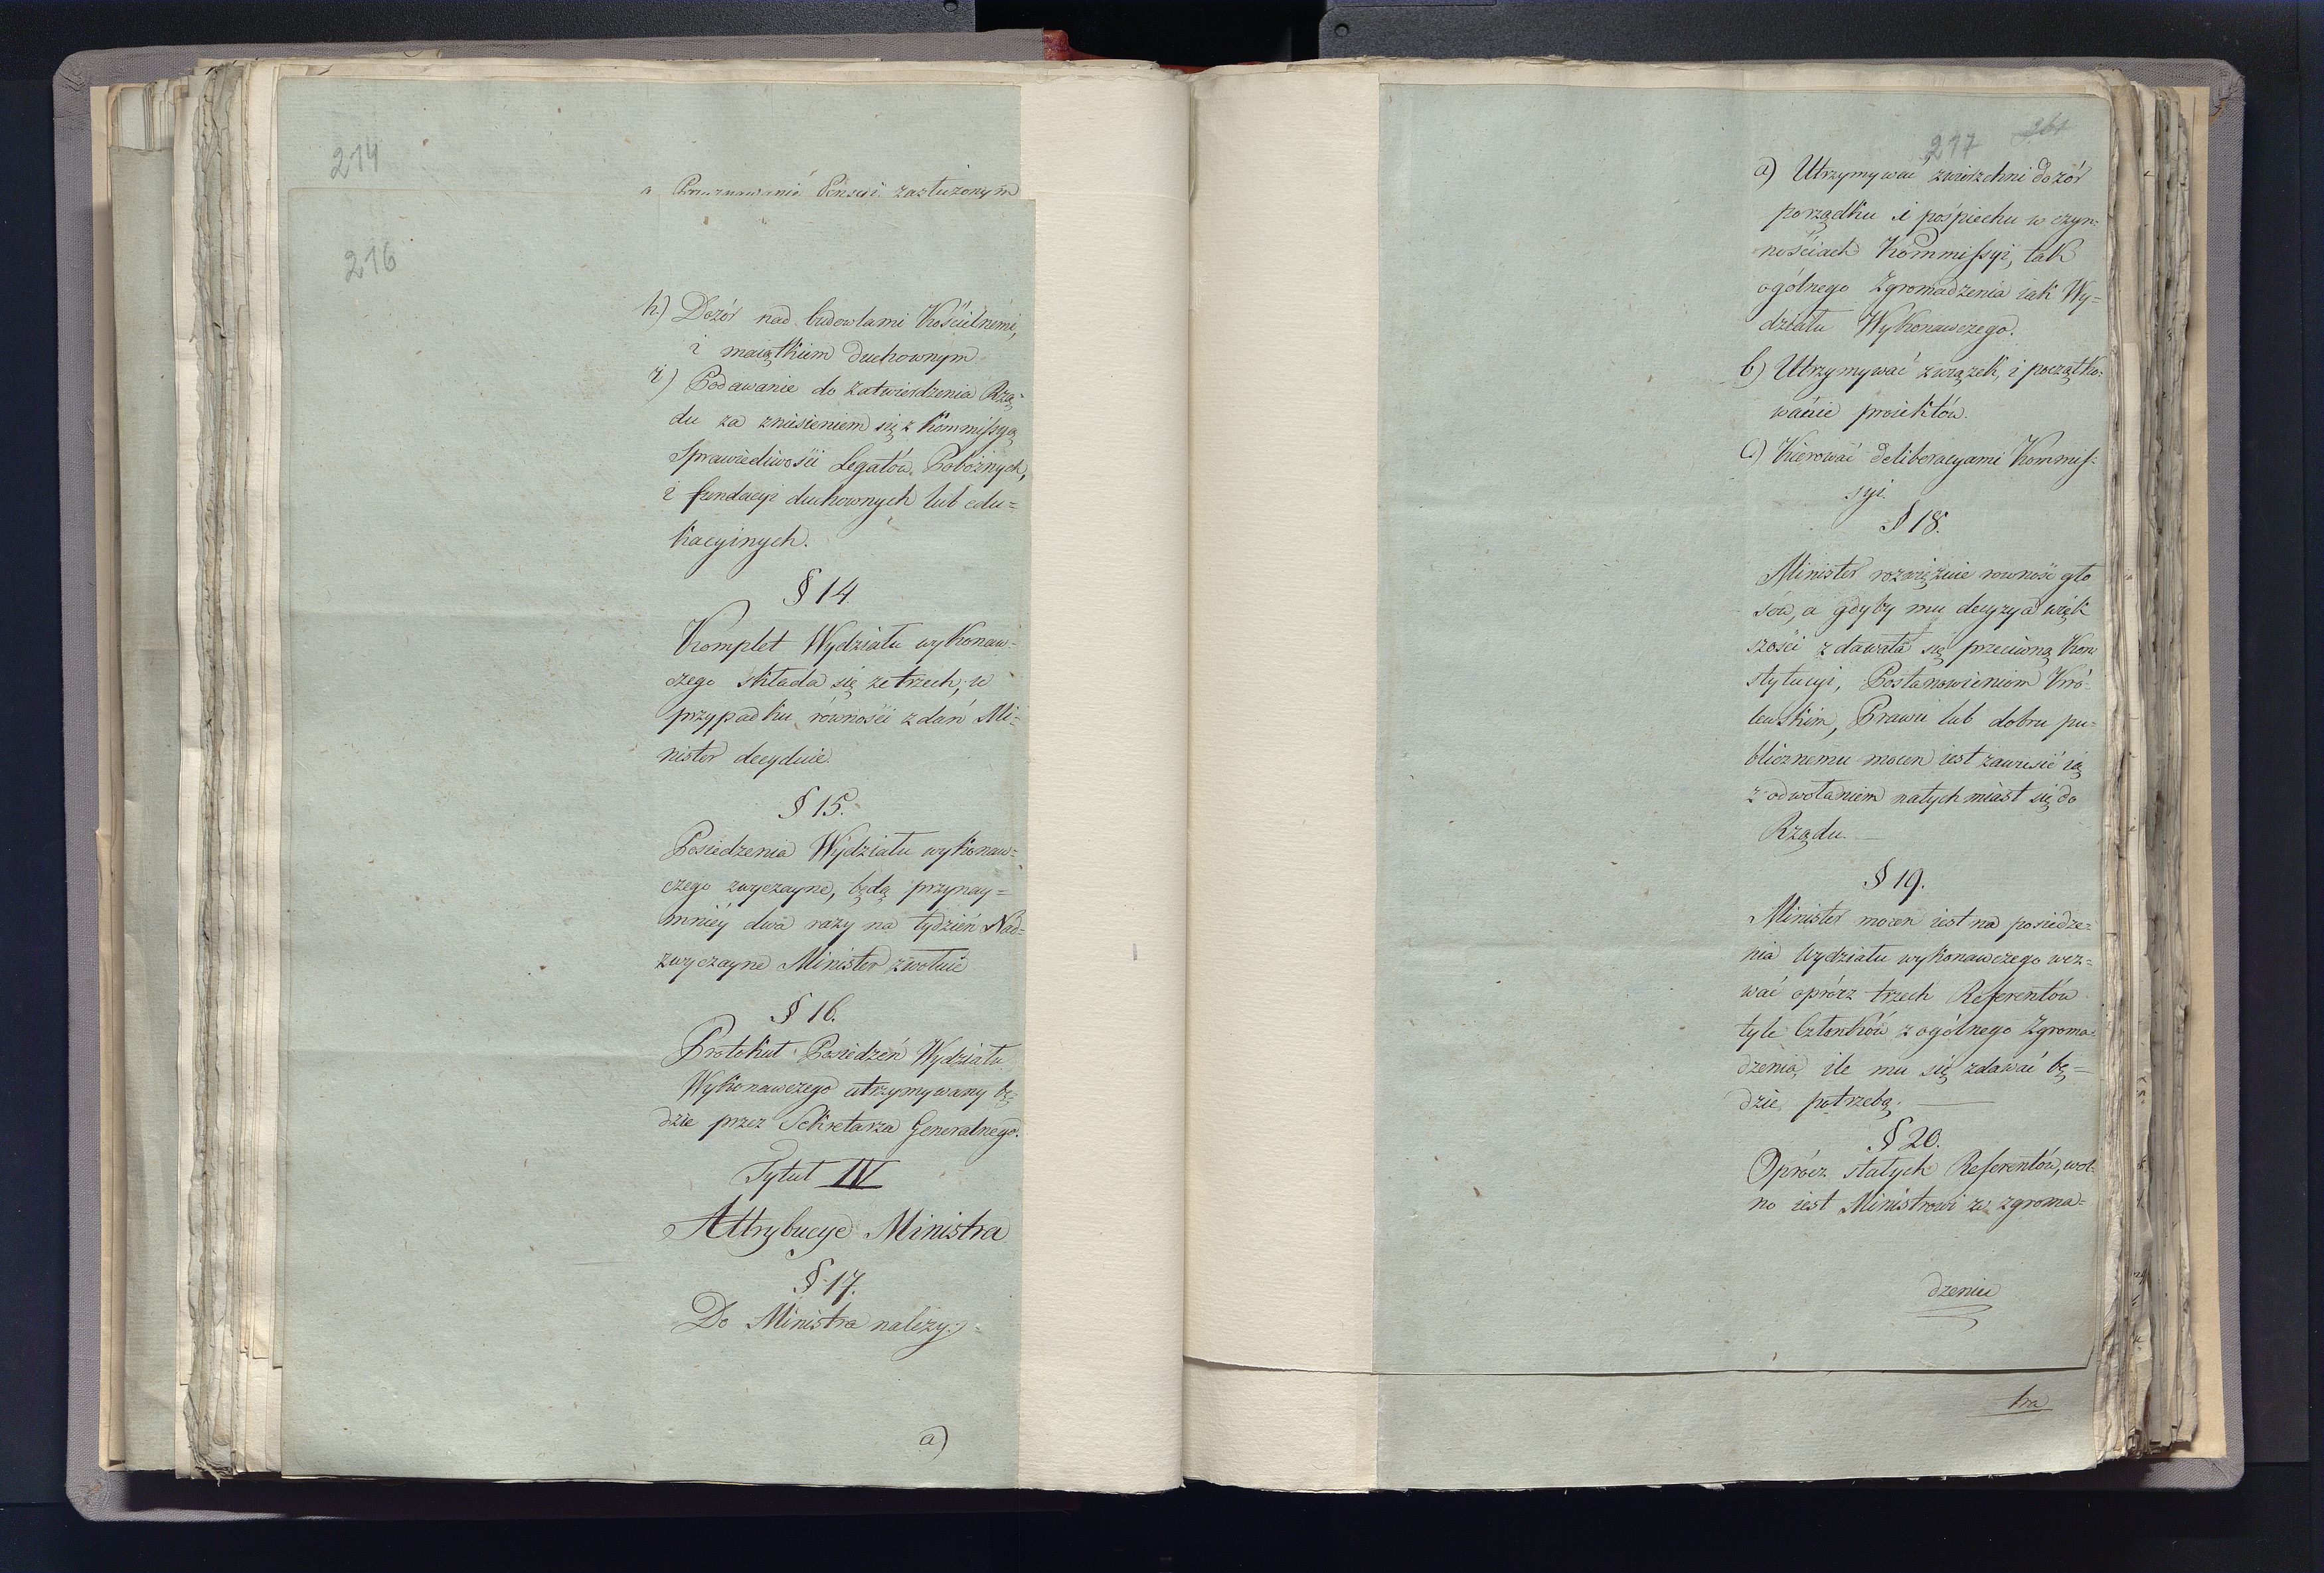 214
Przyznawanie Pensyi zasłużonym
216
h) Dozór nad budowlami Kościelnemi,
i maiątkiem duchownym
i) Podawanie do zatwierdzenia Rzą-
du za zniesieniem się z Kommissyą
Sprawiedliwości Legatów Pobożnych,
i fundacyi duchownych lub edu=
kacyinych.
§ 14.
Komplet Wydziału wykonaw-
czego składa się ze trzech; w
przypadku równości zdań Mi-
nister decyduie.
§ 15.
Posiedzenia Wydziału wykonaw=
czego zwyczayne, będą przynay=
mniéy dwa razy na tydzień Nad=
zwyczayne Minister zwołuie
§ 16.
Protokuł Posiedzeń Wydziału
Wykonawczego utrzymywany bę-
dzie przez Sekretarza Generalnego.
Tytuł IV
Attrybucye Ministra
§ 17.
Do Ministra należy:
a)
217
a) Utrzymywać zwierzchni dozór
porządku i pośpiechu w czyn=
nościach Kommissyi, tak
ogólnego Zgromadzenia iak Wy=
działu Wykonawczego.
b) Utrzymywać związek, i początko-
wanie proiektów.
c) Kierować deliberacyami Kommis-
syi.
§ 18.
Minister rozwiązuie rowność gło
sów, a gdyby mu decyzya więk
szości zdawała się przeciwną Kon
stytucyi, Postanowieniom Kró-
lewskim, Prawu lub dobru pu-
blicznemu mocen iest zawiesić ią
z odwołaniem natychmiast się do
Rządu.
§ 19.
Minister mocen iest na posiedze=
nia Wydziału wykonawczego wez=
wać oprócz trzech Referentów
tyle Członków z ogólnego Zgroma-
dzenia, ile mu się zdawać bę=
dzie potrzebą.
§ 20.
Oprócz stałych Referentów, wol-
no iest Ministrowi w zgroma=
dzeniu
tra